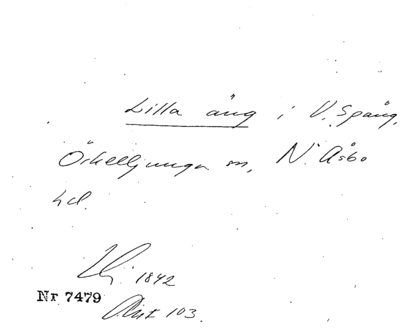 Lilla äng i V. Spång,
Örkelljunga sn, N. Åsbo
hd.
1842
Nr 7479
Akt 103.